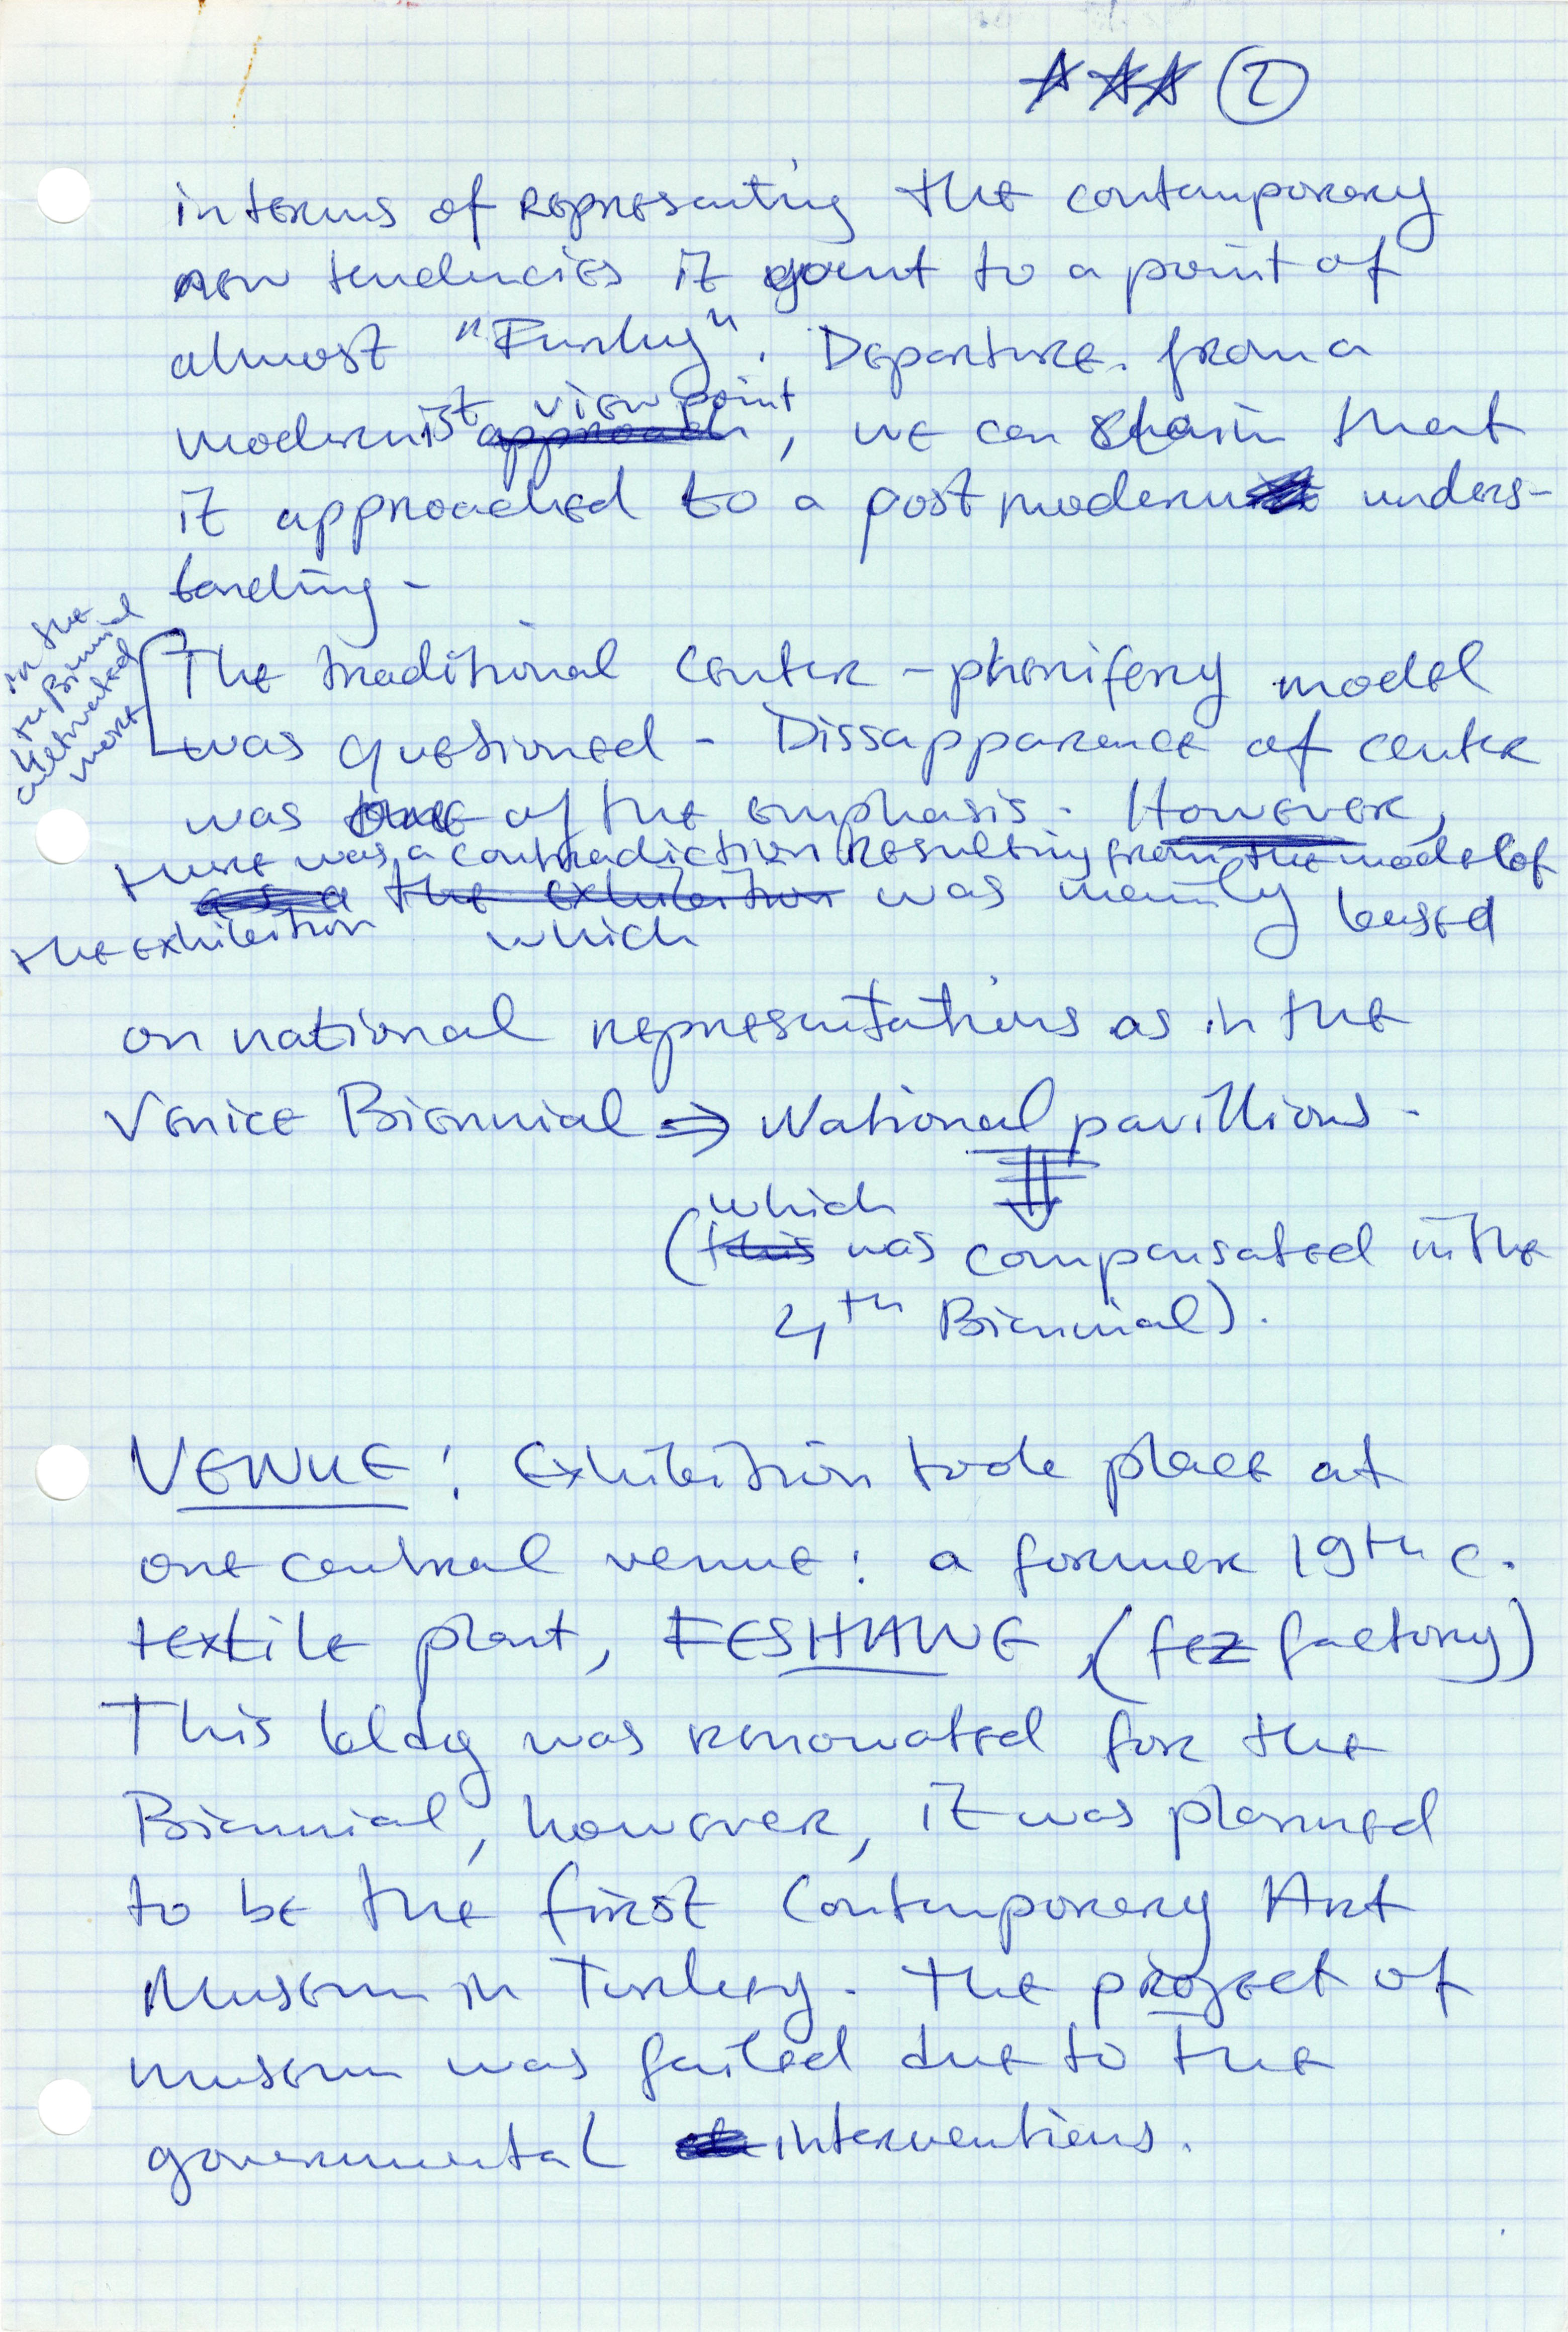 2
in terms of representing the contemporary
new tendencies it went to a point of
almost "Funky". Departure from a
modernist viewpoint
approach, we can claim that
it approached to a postmodern unders-
tanding -
in the
4th Biennial
cultivated
more
The traditional center - phorifery model
was questioned - Dissapparence of center
was one of the emphasis. However,
there was a contradiction resulting from the model of
the exhibition
the exhibition which was mainly based
on national representations as in the
Venice Biennial ⇒ National pavillions -
which
(this was compensated in the
4th Biennial).
VENUE: Exhibition took place at
one central venue: a former 19th c.
textile plant, FESHANE, (fez factory)
This bldg was renowated for the
Biennial, however, it was planned
to be the first Contemporary Art
Museum in Turkey. The project of
museum was failed due to the
governmental interventions.